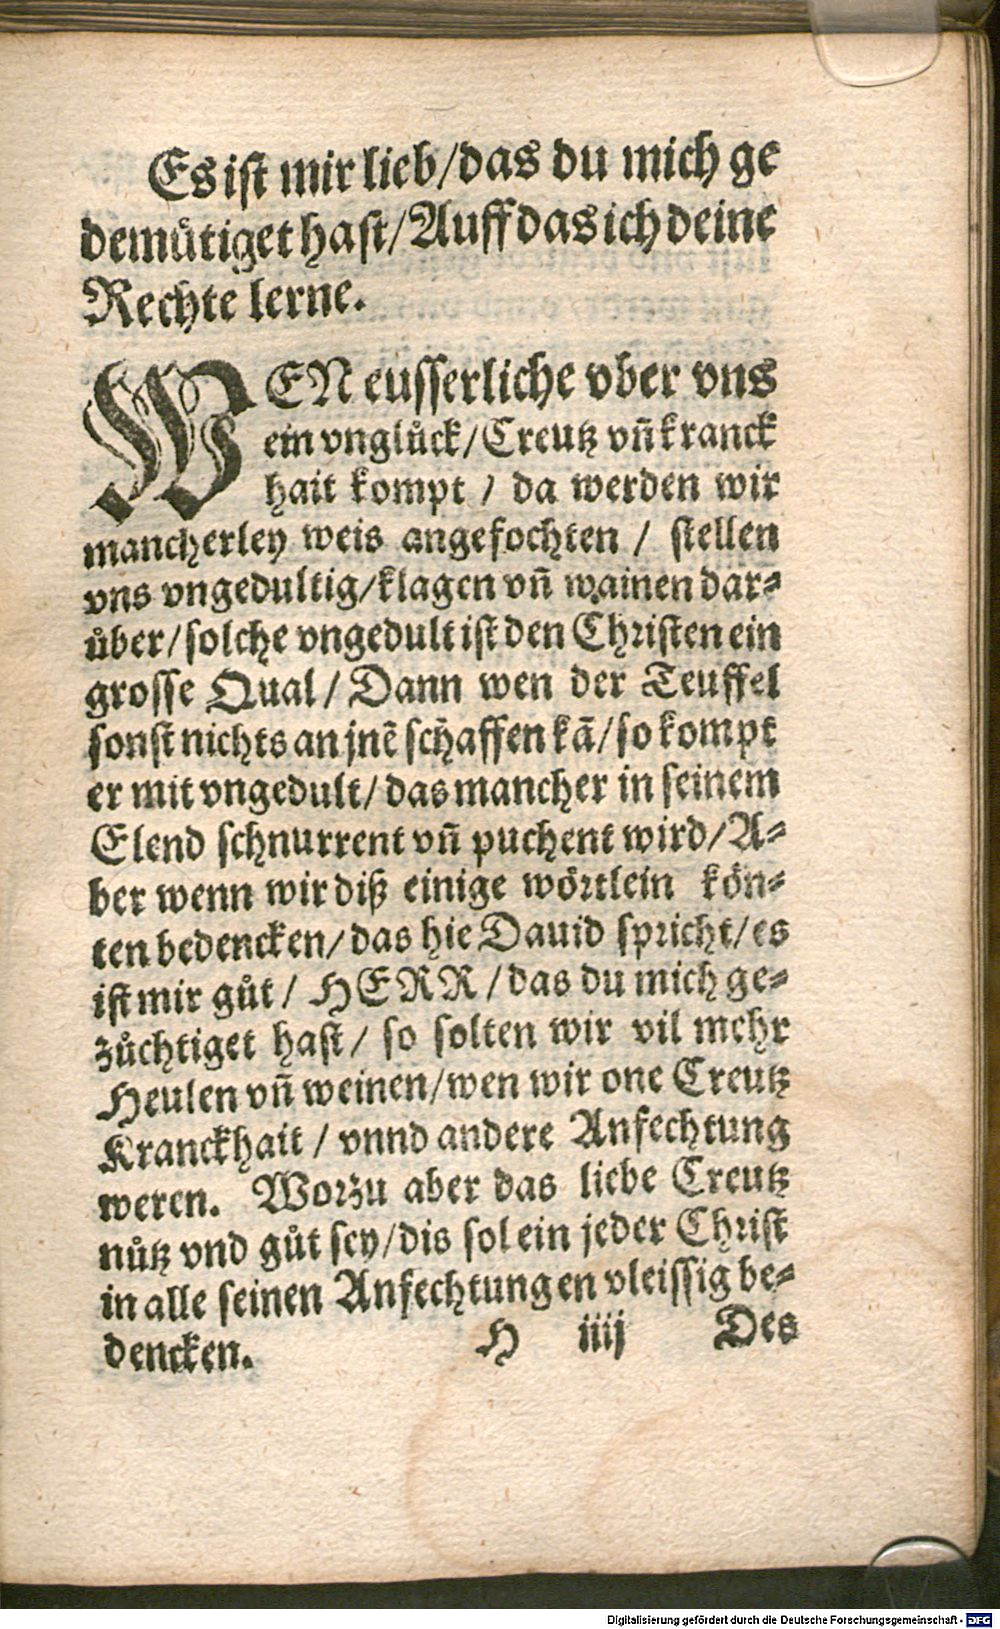 Es ist mir lieb/das du mich ge
demuͤtiget hast/Auff das ich deine
Rechte lerne.
WEN eusserliche vber vns
ein vngluͤck/Creutz vñ kranck
hait kompt / da werden wir
mancherley weis angefochten / stellen
vns vngedultig/klagen vñ wainen dar⸗
uͤber/solche vngedult ist den Christen ein
grosse Qual/ Dann wen der Teuffel
sonst nichts an jnẽ schaffen kã/so kompt
er mit vngedult/das mancher in seinem
Elend schnurrent vñ puchent wird/A⸗
ber wenn wir diß einige woͤrtlein koͤn⸗
ten bedencken/das hie Dauid spricht/es
ist mir guͤt/ HERR/das du mich ge⸗
zuͤchtiget hast/ so solten wir vil mehr
Heulen vñ weinen/wen wir one Creutz
Kranckhait/ vnnd andere Anfechtung
weren. Worzu aber das liebe Creutz
nuͤtz vnd guͤt sey/dis sol ein jeder Christ
in alle seinen Anfechtungen vleissig be⸗
dencken. H iiij Des
Digitalisierung gefördert durch die Deutsche Forschungsgemeinschaft - DFG